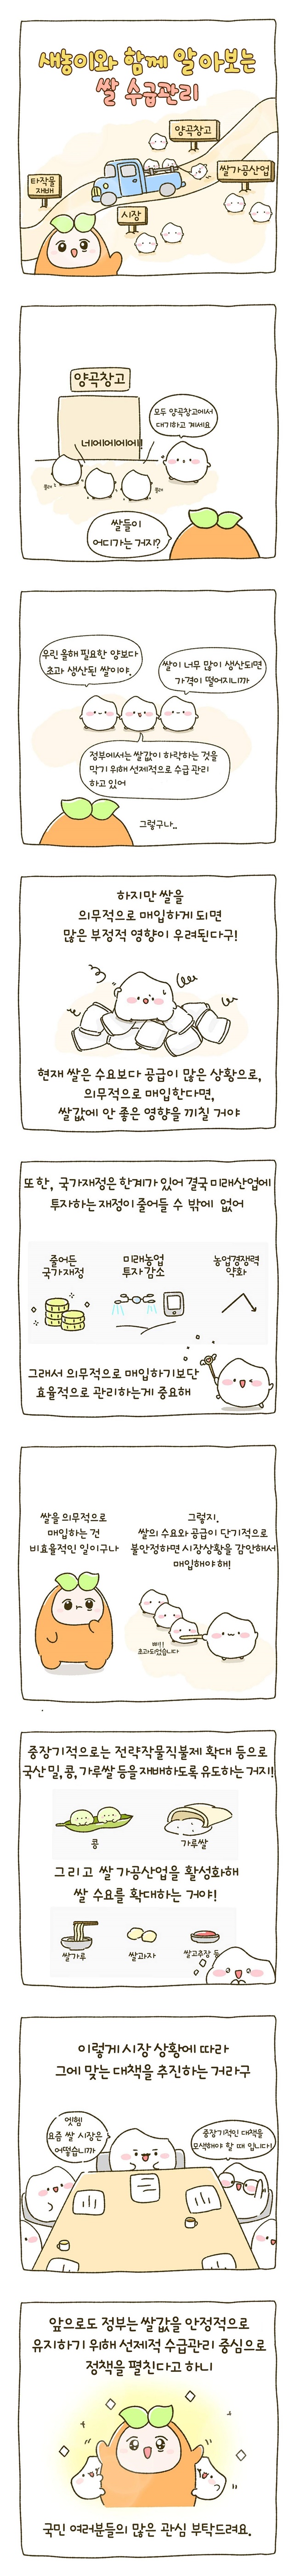 새농이와 함께 알아보는
쌀 수급관리
양곡창고
쌀가공산업
타작물
재배
시장
양곡창고
네에에에에에!
모두 양곡창고에서
대기하고 계세요
쌀들이
어디가는 거지?
우린 올해 필요한 양보다
초과 생산된 쌀이야.
쌀이 너무 많이 생산되면
가격이 떨어지니까
정부에서는 쌀값이 하락하는 것을
막기 위해 선제적으로 수급 관리
하고 있어
그렇구나..
하지만 쌀을
의무적으로 매입하게 되면
많은 부정적 영향이 우려된다구!
현재 쌀은 수요보다 공급이 많은 상황으로,
의무적으로 매입한다면,
쌀값에 안 좋은 영향을 끼칠 거야
또한, 국가재정은 한계가 있어 결국 미래산업에
투자하는 재정이 줄어들 수 밖에 없어
줄어든
국가재정
미래농업
투자 감소
농업경쟁력
약화
그래서 의무적으로 매입하기보단
효율적으로 관리하는게 중요해
쌀을 의무적으로
매입하는 건
비효율적인 일이구나
그렇지.
쌀의 수요와 공급이 단기적으로
불안정하면 시장상황을 감안해서
매입해야 해!
삐!!
초과되었습니다
중장기적으로는 전략작물직불제 확대 등으로
국산 밀, 콩, 가루쌀 등을 재배하도록 유도하는 거지!
콩
가루쌀
그리고 쌀 가공산업을 활성화해
쌀 수요를 확대하는 거야!
쌀가루
쌀과자
쌀고추장 등
이렇게 시장 상황에 따라
그에 맞는 대책을 추진하는 거라구
엣헴
요즘 쌀 시장은
어떻습니까
중장기적인 대책을
모색해야 할 때 입니다!
앞으로도 정부는 쌀값을 안정적으로
유지하기 위해 선제적 수급관리 중심으로
정책을 펼친다고 하니
국민 여러분들의 많은 관심 부탁드려요.